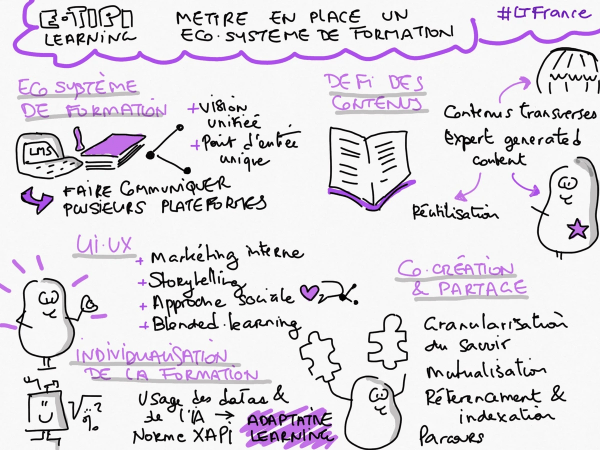 E-TIPI
LEARNING
METTRE EN PLACE UN
ECO-SYSTEME DE FORMATION
#LTFrance
ECO SYSTÈME
DE FORMATION
+ Vision
unifiée
+ Point d'entrée
unique
LMS
FAIRE COMMUNIQUER
PLUSIEURS PLATEFORMES
DEFI DES
CONTENUS
Contenus transverses
Expert generated
content
Réutilisation
UI-UX
+ Markéting interne
+ Storytelling
+ Approche sociale
+ Blended-learning
INDIVIDUALISATION
DE LA FORMATION
Usage des datas &
de l'IA → ADAPTATIVE
Norme XAPI LEARNING
CO-CRÉATION
& PARTAGE
Granularisation
du savoir
Mutualisation
Référencement &
indexation
Parcours